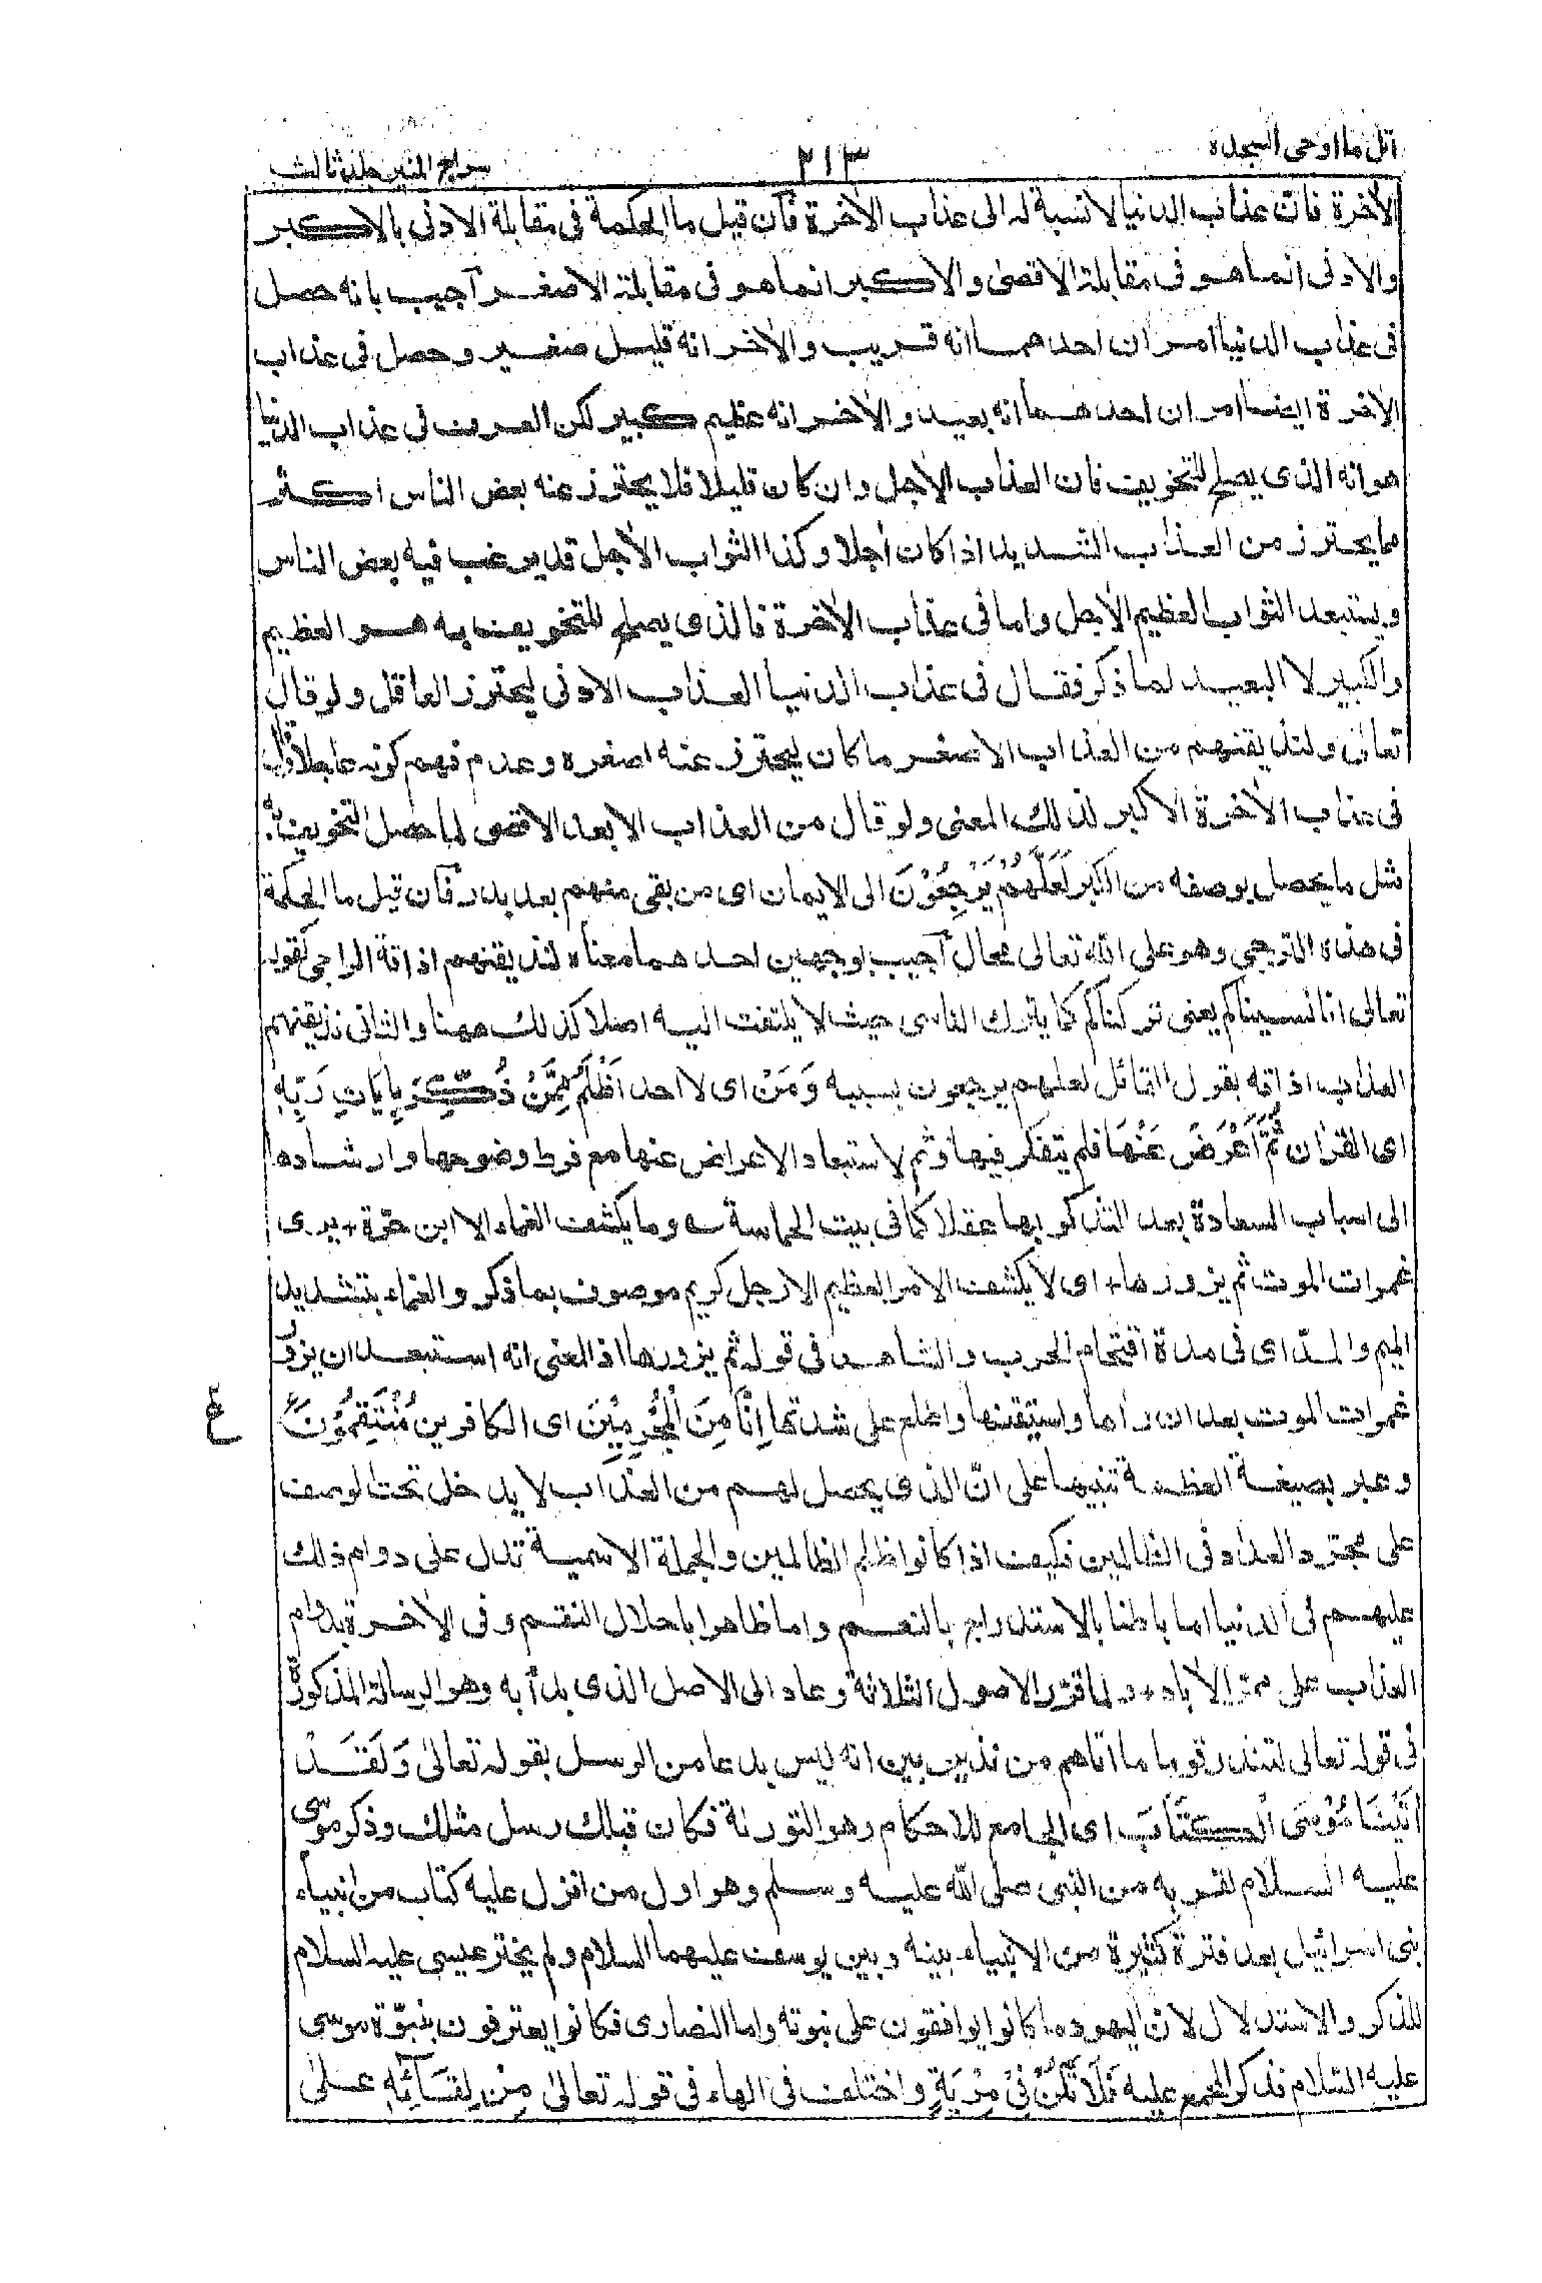 اتل ما اوحى السجدة
٢١٣
سراج المنير جلد ثالث
الأخرة فانّ عذاب الدنيا لا نسبة له الى عذاب الأخرة فآن قيل ما الحكمة فى مقابلة الادنى بالاكبر
والادنى انما هو فى مقابلة الاقصى والاكبر انما هو فى مقابلة الاصغر آجيب بانه حصل
فى عذاب الدنيا امران احدهما انه قريب والأخر انه قليل صغير وحصل فى عذاب
الأخرة ايضا امران احدهما انه بعيد والأخر انه عظيم كبير لكن العرف فى عذاب الدنيا
هو انه الذى يصلح للتخويف فان العذاب الأجل وان كان قليلا فلا يحترز عنه بعض الناس اكثر
مما يحترز من العذاب الشديد اذا كان أجلا وكذا الثواب الأجل قد يرغب فيه بعض الناس
ويستبعد الثواب العظيم الأجل واما فى عذاب الأخرة فالذى يصلح للتخويف به هو العظيم
والكبير لا البعيد لما ذكر فقال فى عذاب الدنيا العذاب الادنى ليحترز العاقل ولو قال
تعالى ولنذيقنهم من العذاب الاصغر ما كان ليحترز عنه اصغره وعدم فهم كونه عاجلا وقال
فى عذاب الأخرة الاكبر لذلك المعنى ولو قال من العذاب الابعد الاقصى لما حصل التخويف به
مثل ما يحصل بوصفه من الكبر لَعَلَّهُمْ يَرْجِعُوْنَ الى الايمان اى من بقى منهم بعد بدر فآن قيل ما الحكمة
فى هذه الترجى وهو على الله تعالى محال آجيب بوجهين احدهما معناه لنذيقنهم اذاقة الراجى كقوله
تعالى انا نسيناكم يعنى تركناكم كما يترك الناسى حيث لا يلتفت اليه اصلا كذلك ههنا والثانى نذيقنهم
العذاب اذاقة بقول القائل لعلهم يرجعون بسببه وَمَنْ اى لا احد اَظْلَمُ مِمَّنْ ذُكِّرَ بِاٰيَاتِ رَبِّهٖ
اى القران ثُمَّ اَعْرَضَ عَنْهَا فلم يتفكر فيها وثم لاستبعاد الاعراض عنها مع فرط وضوحها وارشادها
الى اسباب السعادة بعد التذكير بها عقلا كما فى بيت الحماسة ؎ وما يكشف الغماء الا ابن حرّة + يرى
غمرات الموت ثم يزورها + اى لا يكشف الامر العظيم الا رجل كريم موصوف بما ذكر والغماء بتشديد
الميم والمدّ اى فى مدة اقتحام الحرب والشاهد فى قوله ثم يزورها اذ المعنى انه استبعد ان يزور
غمرات الموت بعد ان رأها واستيقنها واطلع على شدتها اِنَّا مِنَ الْمُجْرِمِيْنَ اى الكافرين مُنْتَقِمُوْنَ
ع
وعبر بصيغة العظمة تنبيها على انّ الذى يحصل لهم من العذاب لا يدخل تحت الوصف
على مجرد العداد فى الظالمين فكيف اذا كانوا اظلم الظالمين والجملة الاسمية تدل على دوام ذلك
عليهم فى الدنيا اما باطنا بالاستدراج بالنعم واما ظاهرا باحلال النقم وفى الأخرة بدوام
العذاب على ممرّ الأباد + ولما قرّر الاصول الثلاثة وعاد الى الاصل الذى بدأ به وهو الرسالة المذكورة
فى قوله تعالى لتنذر قوما ما اتاهم من نذير بين انه ليس بدعا من الرسل بقوله تعالى وَلَقَدْ
اٰتَيْنَا مُوْسَى الْكِتَابَ اى الجامع للاحكام وهو التوراة فكان قبلك رسل مثلك وذكر موسى
عليه السلام لقربه من النبى صلى الله عليه وسلم وهو اول من انزل عليه كتاب من انبياء
بنى اسرائيل بعد فترة كثيرة من الانبياء بينه وبين يوسف عليهما السلام ولم يختر عيسى عليه السلام
للذكر والاستدلال لان اليهود ما كانوا يوافقون على نبوته واما النصارى فكانوا يعترفون بنبوّة موسى
عليه السلام فذكر المجمع عليه فَلَا تَكُنْ فِىْ مِرْيَةٍ واختلف فى الهاء فى قوله تعالى مِنْ لِقَآئِهٖ على